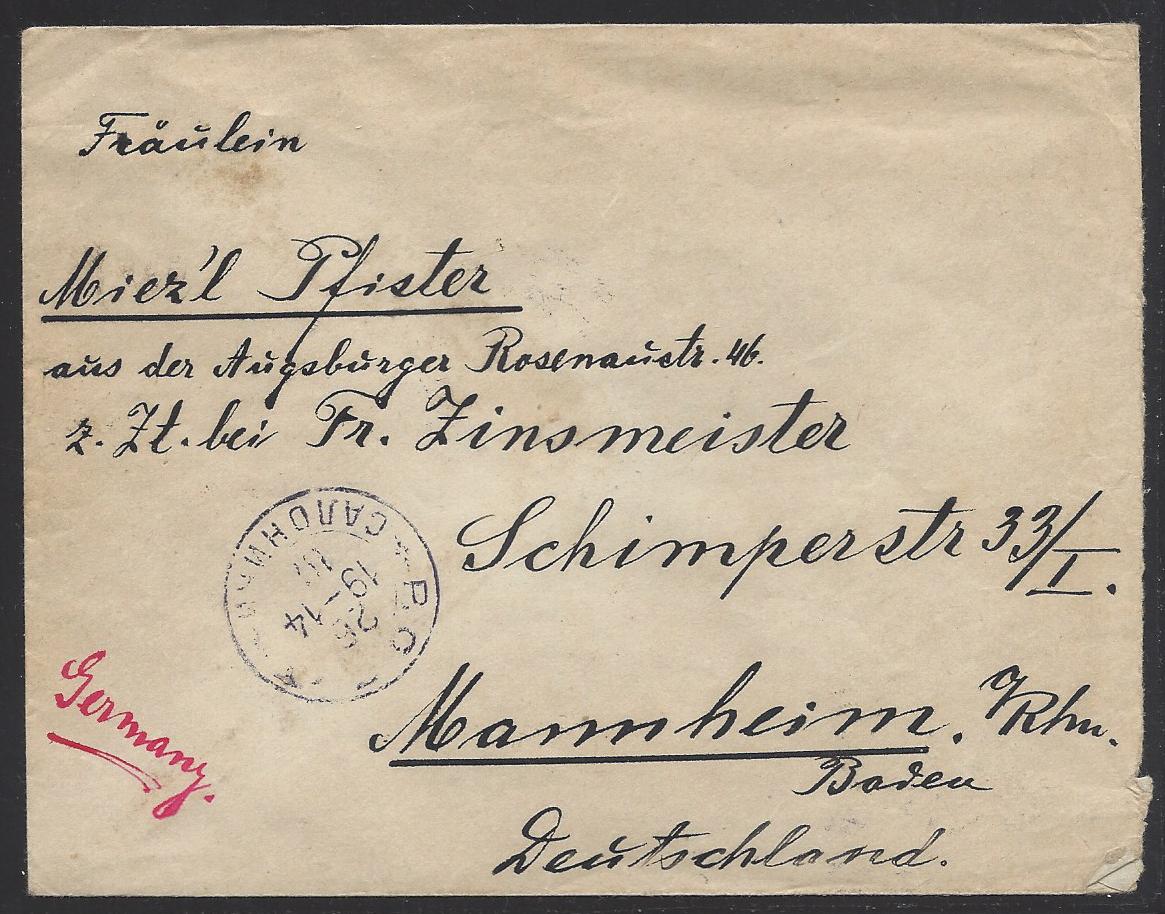 Fräulein
Mierz'l Pfister
aus der Augsburger Rosenaustr. 46.
z. Zt. bei Fr. Zinsmeister
Schimperstr 33/I.
РОП
САЛОНИКИ
26
19-14
IV
Germany.
Mannheim. a/Rhn.
Baden
Deutschland.